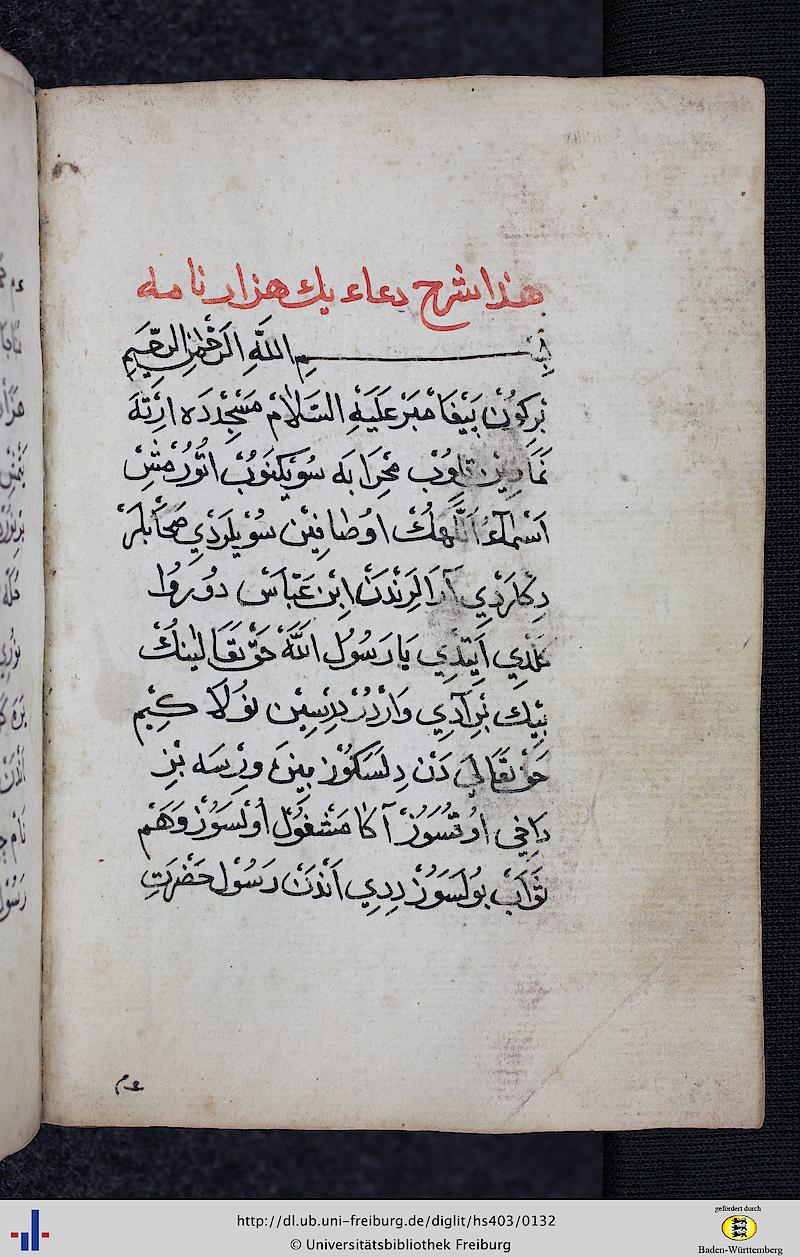 هذا شرح دعاء يك هزار نامه
بسم الله الرحمن الرحيم
بْرِكُونْ بَيْغَامْبَرْ عَلَيْهِ السَّلَامْ مَسْجِدْدَه ارْتَه
نَمَازِينْ قِلُوبْ مِحْرَابَه سُويْكَنُوبْ اتُورْمِشْ
اَسْمَاءُ اللَّهِكْ اوُصَافِينْ سُويْلَرْدِي صَحَابَلَرْ
دِكْلَرْدِي آرَالَرِنْدَنْ اِبْنِ عَبَّاسْ دوُرُو
كَلْدِي اَيِتْدِي يَا رَسُولَ اللَّهْ حَقْ تَعَالَينُكْ
بِيْكْ بِرْ آدِي وَارْدُرْ بِرِيسِينْ بُولَا كِيمْ
حَقْ تَعَالَي دَنْ دِلَسَكُوزْ بِيزَه وِرْسَه بِزْ
دَاخِي اوُقُسَوُزْ آكَا مَشْغُولْ اُولْسَوُزْ وَهَمْ
ثَوَابْ بُولْسَوُزْ دِدِي اَنْدَنْ رَسُولْ حَضْرَتِ
عم
http://dl.ub.uni-freiburg.de/diglit/hs403/0132
© Universitätsbibliothek Freiburg
gefördert durch
Baden-Württemberg